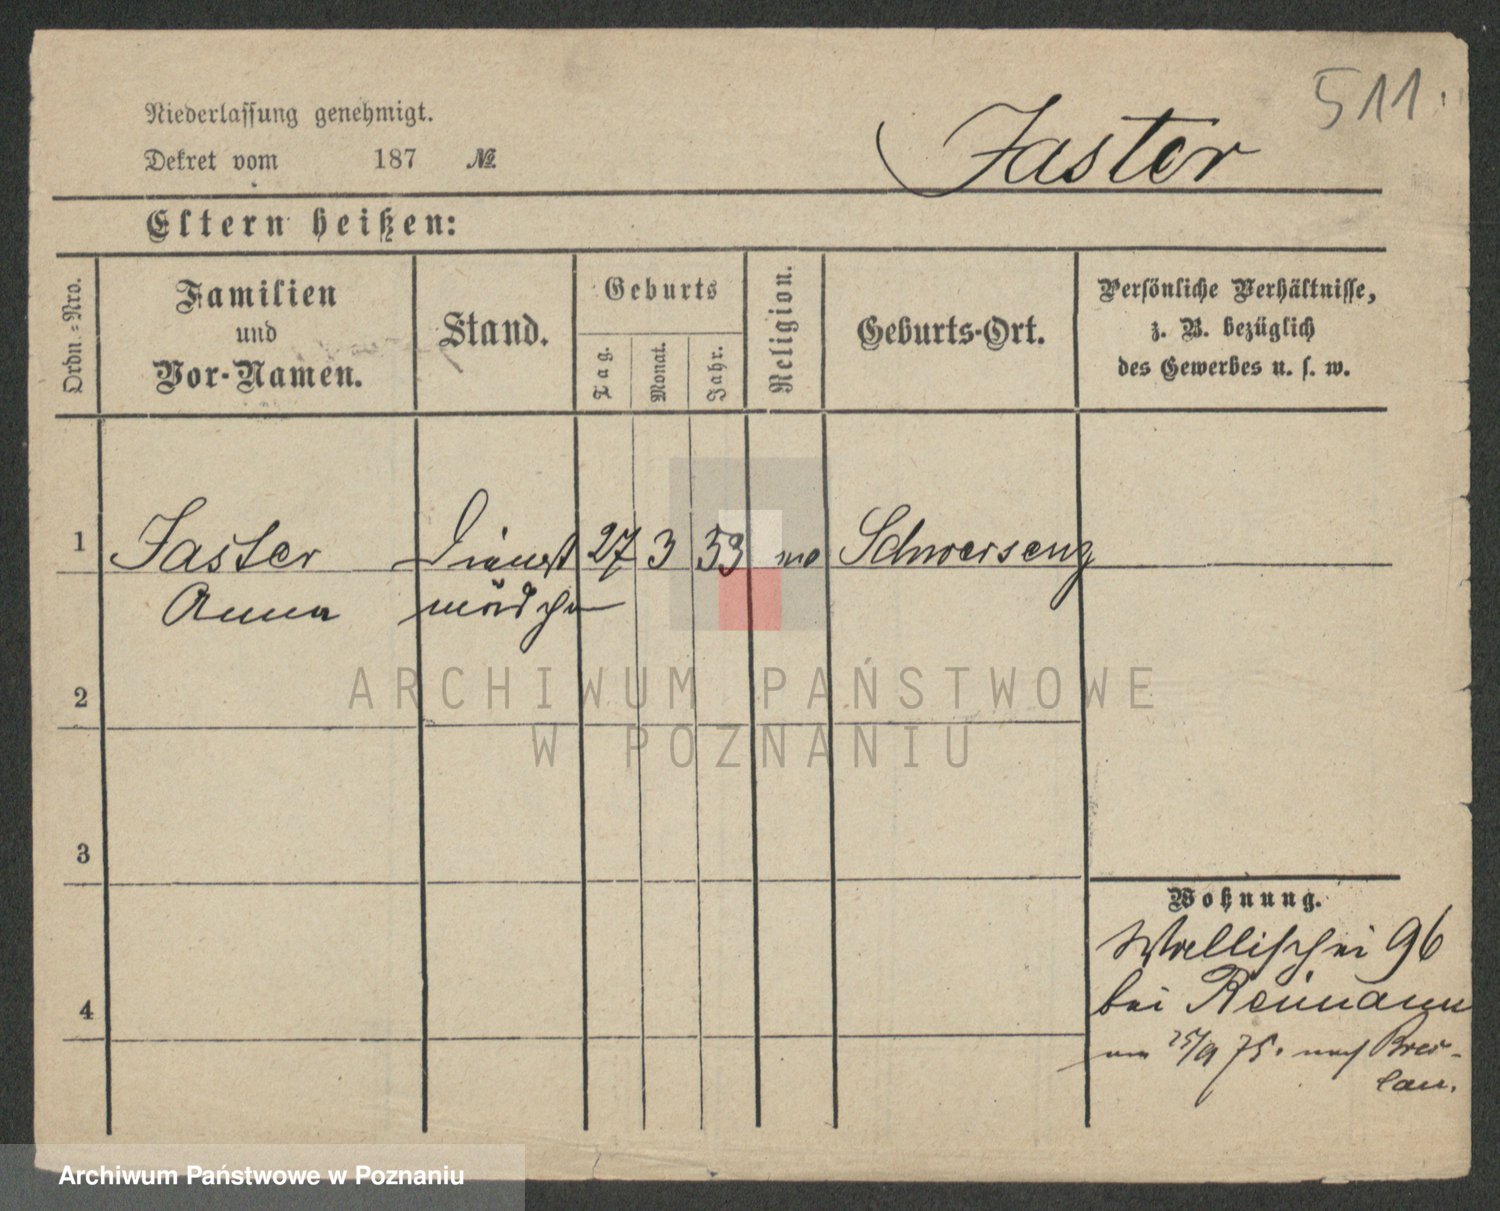 511.
Niederlassung genehmigt.
Jaster
Dekret vom 187 №
Eltern heißen:
Ordn.=Nro.
Familien
und
Vor-Namen.
Stand.
Geburts
Tag.
Monat.
Jahr.
Religion.
Geburts-Ort.
Persönliche Verhältnisse,
z. B. bezüglich
des Gewerbes u. s. w.
1 Jaster Dienst 27 3 53 Schwersenz
Anna mädchen
2
3
4
Wohnung.
Wallischei 96
bei Reimann
25/9 75. nach Bres-
lau.
ARCHIWUM PAŃSTWOWE
W POZNANIU
Archiwum Państwowe w Poznaniu